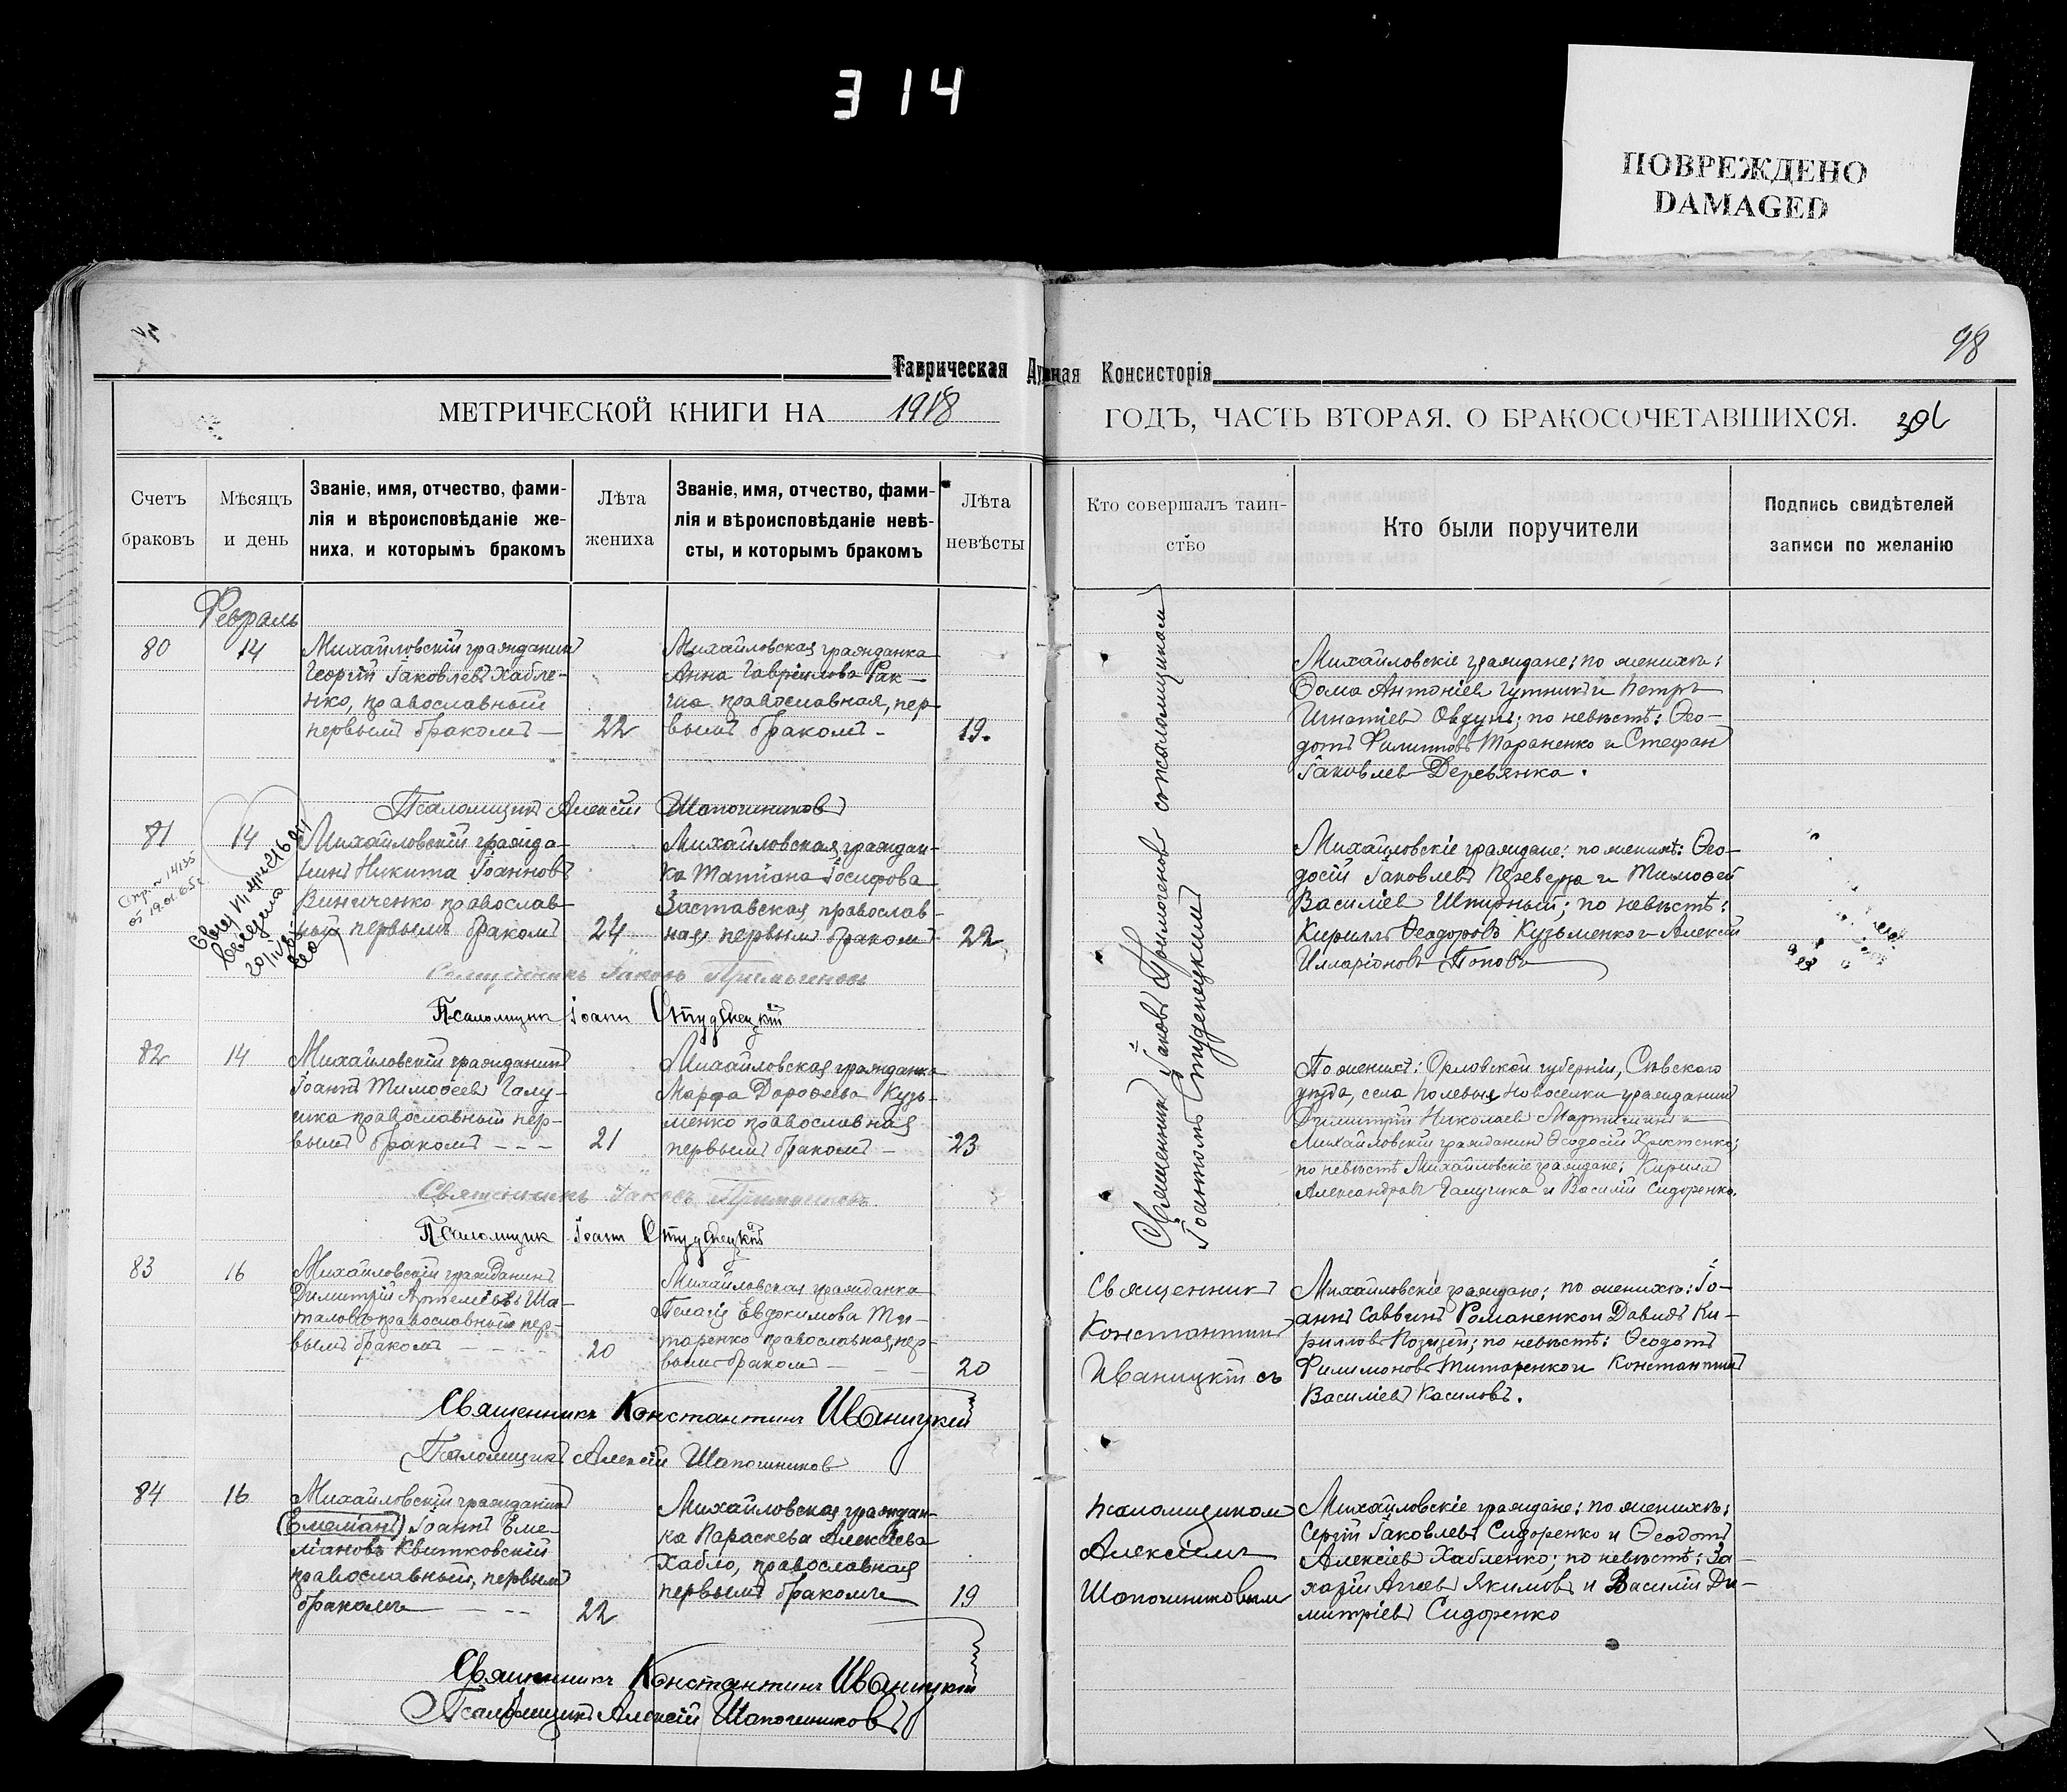 314
ПОВРЕЖДЕНО
DAMAGED
98
Таврическая Духовная Консисторія
МЕТРИЧЕСКОЙ КНИГИ НА 1918
ГОДЪ, ЧАСТЬ ВТОРАЯ. О БРАКОСОЧЕТАВШИХСЯ.
Счетъ браковъ
Мѣсяцъ и день
Званіе, имя, отчество, фами-
лія и вѣроисповѣданіе же-
ниха, и которымъ бракомъ
Лѣта жениха
Званіе, имя, отчество, фами-
лія и вѣроисповѣданіе невѣ-
сты, и которымъ бракомъ
Лѣта невѣсты
Кто совершалъ таин-
ство
Кто были поручители
Подпись свидѣтелей
записи по желанію
Февраль
80
14
Михайловскій гражданинъ
Георгій Іаковлевъ Хабле-
нко, православный
первымъ бракомъ
22
Михайловская гражданка
Анна Гавріилова Рак-
ша православная, пер-
вымъ бракомъ -
19.
Михайловскіе граждане: по женихѣ:
Ѳома Антоніев Гутникъ и Петръ
Игнатіев Овдун; по невѣстѣ: Ѳео-
дотъ Филиппов Тараненко и Стефан
Іаковлев Деревянка.
Псаломщикъ Алексій Шапошников
81
14
Михайловскій гражда-
нинъ Никита Іоанновъ
Виниченко православ-
ный первымъ бракомъ
24
Михайловская граждан-
ка Татіана Іосифова
Заставская православ-
ная первымъ бракомъ
22
Михайловскіе граждане: по женихѣ: Ѳео-
досій Іаковлевъ Переверза и Тимоѳей
Василіев Шпирный; по невѣстѣ:
Кириллъ Ѳеодоровъ Кузьменко и Алексій
Илларіоновъ Поповъ
Священникъ Іаковъ
Псаломщик Іоанн Студенецкій
82
14
Михайловскій гражданинъ
Іоаннъ Тимоѳеевъ Галу-
шка православный пер-
вымъ бракомъ - - -
21
Михайловская гражданка
Марфа Дороѳеева Кузь-
менко православная
первымъ бракомъ -
23
По женихѣ: Орловской губерніи, Сѣвского
уѣзда, села Полевыя Новоселки гражданинъ
Димитрій Николаев и
Михайловскій гражданинъ Ѳеодосій Христенко;
по невѣстѣ Михайловскіе граждане: Кириллъ
Александровъ Галушка и Василій Сидоренко.
Священникъ Іаковъ
Псаломщик Іоанн Студенецкій
Священник Іаковъ съ псаломщиком
Іоанномъ Студенецкимъ
83
16
Михайловскій гражданинъ
Димитрій Артемьевъ Ша-
таловъ православный пер-
вымъ бракомъ - - - -
20
Михайловская гражданка
Пелагія Евдокимова Ти-
таренко православная, пер-
вымъ бракомъ -
20
Священникъ
Константинъ
Иваницкій съ
Михайловскіе граждане: по женихѣ: Іо-
аннъ Саввинъ Романенко и Давидъ Ки-
риллов Позизей; по невѣстѣ: Ѳеодотъ
Филимоновъ Титаренко и Константинъ
Василіевъ Касиловъ.
Священникъ Константинъ Иваницкій
Псаломщикъ Алексій Шапошников
84
16
Михайловскій гражданинъ
(Емеліанъ) Іоаннъ Еме-
ліановъ Квитковскій
православный, первымъ
бракомъ - --
22
Михайловская граждан-
ка Параскева Алексіева
Хабло, православная
первымъ бракомъ
19
псаломщиком
Алексіемъ
Шапошниковым
Михайловскіе граждане: по женихѣ:
Сергій Іаковлевъ Сидоренко и Ѳеодотъ
Алексіев Хабленко; по невѣстѣ: За-
харій Аггеев Якимовъ и Василій Ди-
митріевъ Сидоренко
Священникъ Константинъ Иваницкій
Псаломщикъ Алексій Шапошниковъ